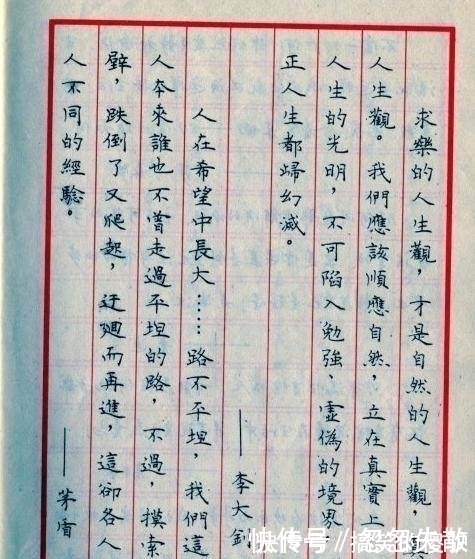 求樂的人生觀，才是自然的人生觀，
人生觀。我們應該順應自然，立在真實上
人生的光明，不可陷入勉強、虛偽的境界
正人生都歸幻滅。
——李大釗
人在希望中長大……路不平坦，我們這
人本來誰也不曾走過平坦的路，不過，摸索
壁，跌倒了又爬起，迂迴而再進，這卻各人
人不同的經驗。
——茅盾
快传号 /